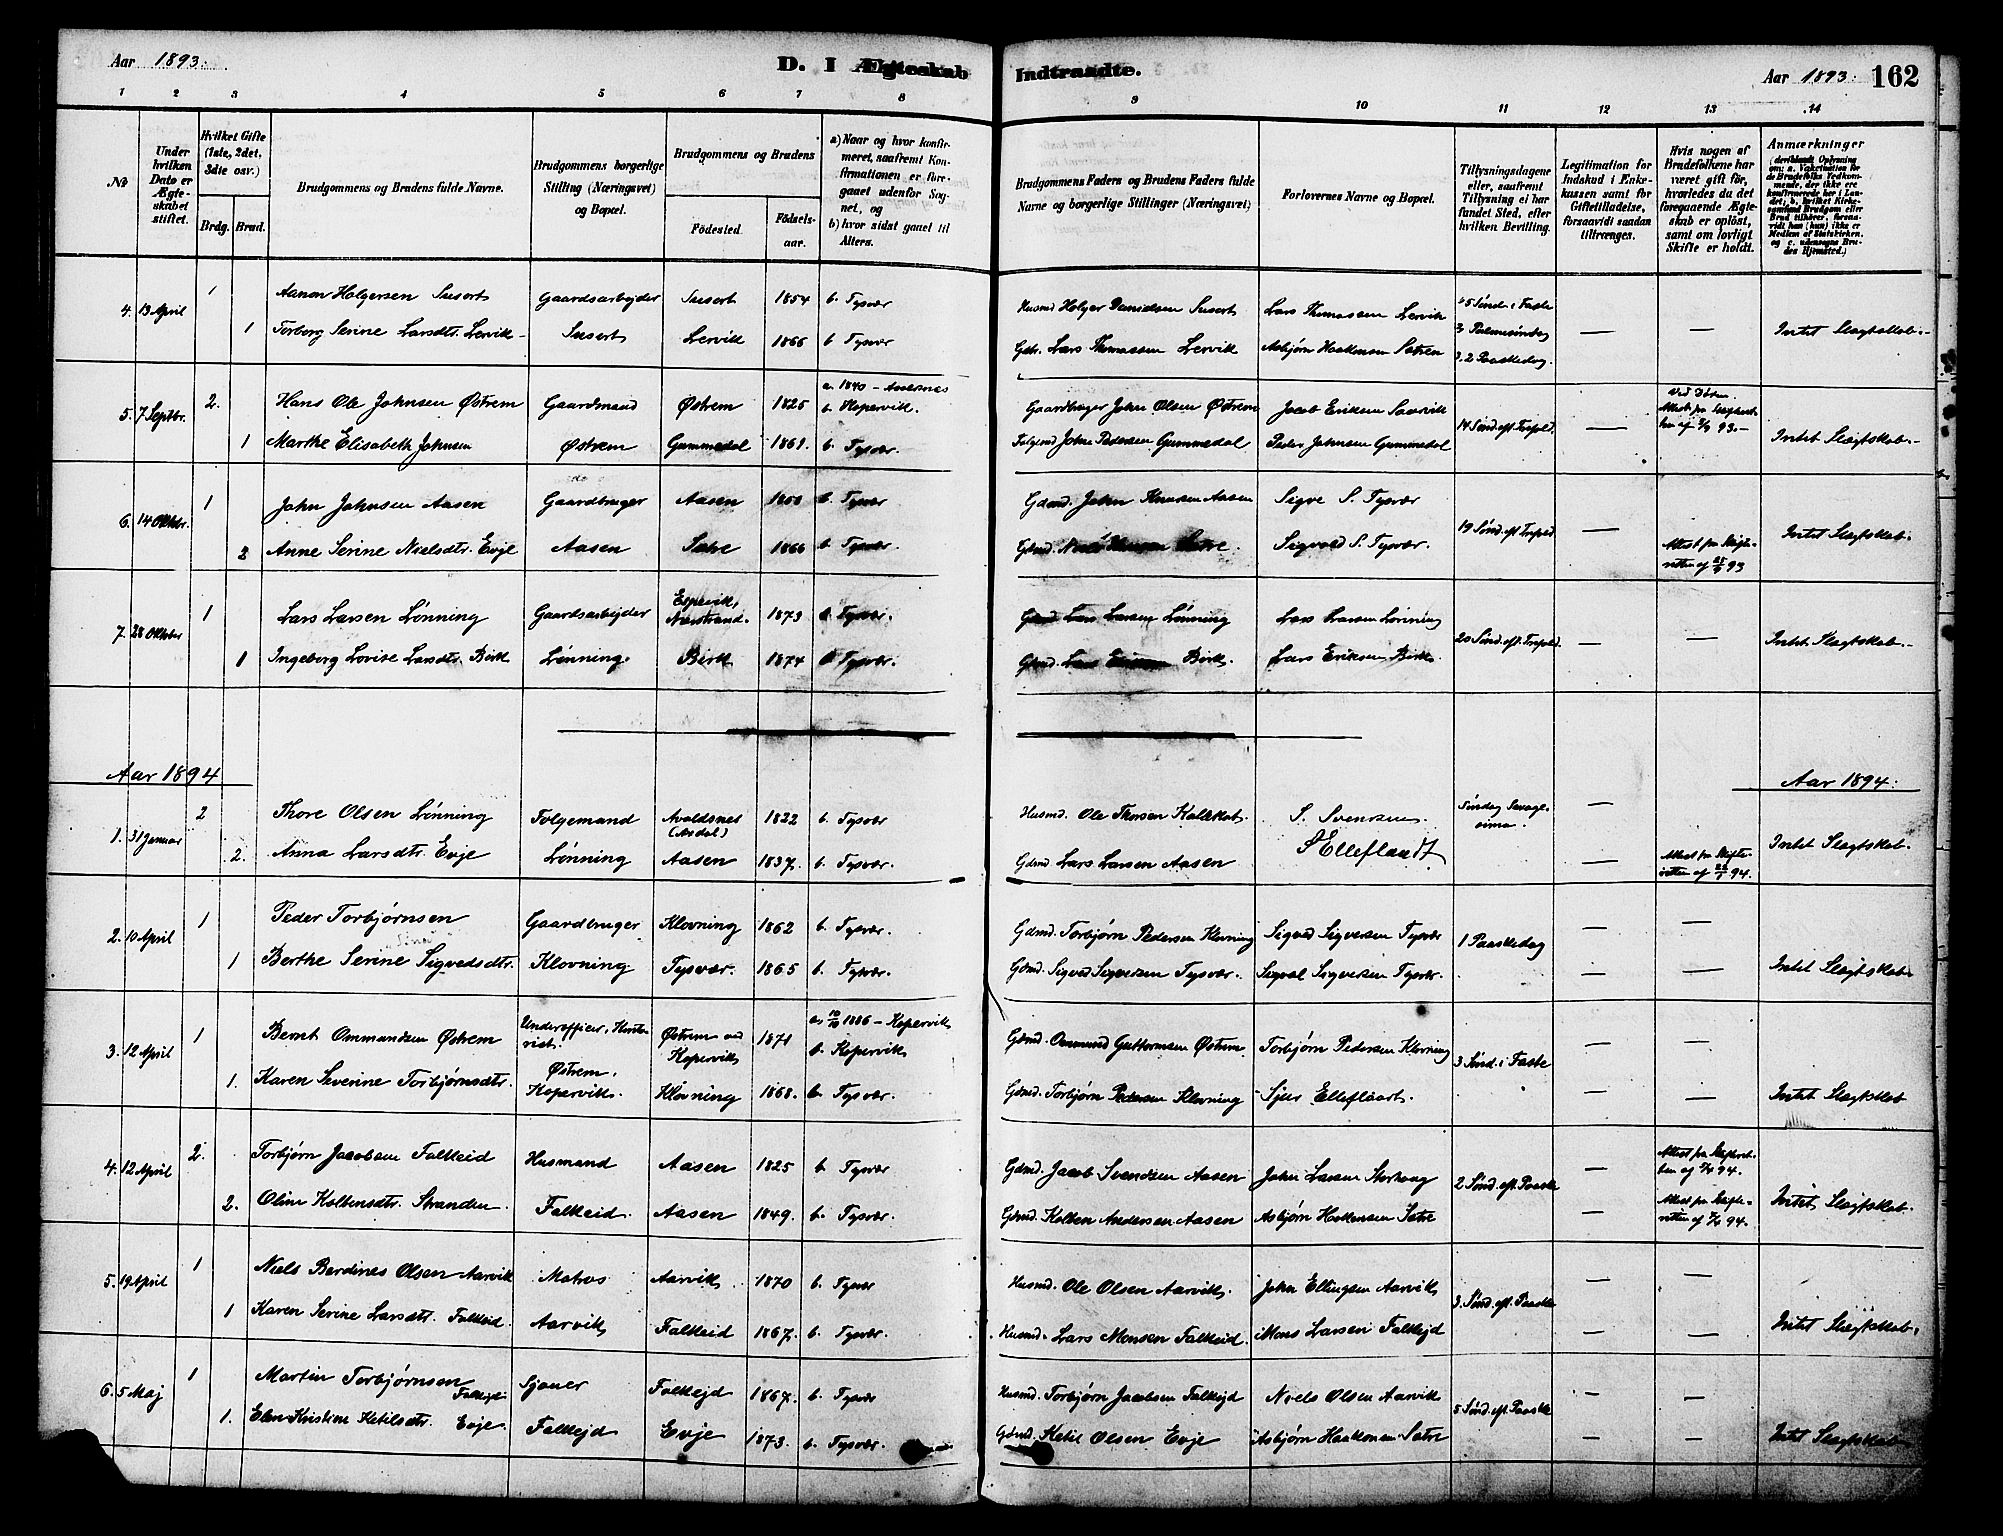 Aar 1893.
D. I Ægteskab Indtraadte.
Aar 1893. 162
1 2 3 4 5 6 7 8 9 10 11 12 13 14
№
Under hvilken Dato er Ægteskabet stiftet.
Hvilket Gifte (1ste, 2det, 3die osv.)
Brdg. Brud.
Brudgommens og Brudens fulde Navne.
Brudgommens borgerlige Stilling (Næringsvei) og Bopæl.
Brudgommens og Brudens
Fødested.
Fødselsaar.
a) Naar og hvor konfirmeret, saafremt Konfirmationen er foregaaet udenfor Sognet, og
b) hvor sidst gaaet til Alters.
Brudgommens Faders og Brudens Faders fulde Navne og borgerlige Stillinger (Næringsvei)
Forlovernes Navne og Bopæl.
Tillysningsdagene eller, saafremt Tillysning ei har fundet Sted, efter hvilken Bevilling.
Legitimation for Indskud i Enkekassen samt for Giftetilladelse, forsaavidt saadan tiltrænges.
Hvis nogen af Brudefolkene har været gift før, hvorledes da det foregaaende Ægteskab er opløst, samt om lovligt Skifte er holdt.
Anmærkninger
4. 13 April 1 Aanon Holgersen Susort Gaardsarbejder Susort 1854 b. Tysvær Husmd Holger Danielsen Susort Lars Thomassen Lervik 5 Sønd. i Faste
1 Torborg Serine Larsdtr. Lervik Susort Lervik 1866 b. Tysvær Gbr. Lars Thomassen Lervik Asbjørn Haakensen Sætren Palmesøndag — — Intet Slagtskab.
2 Paaskedag.
5. 7 Septbr. 2. Hans Ole Johnsen Østrem Gaardmand Østrem 1825 a. 1840 - b. Kopervik. Gaardbruger John Olsen Østrem Jacob Eriksen
1 Marthe Elisabeth Johnsen Østrem Gummedal 1861. b. Tysvær. John Pedersen Gummedal Peder Johnsen Gummedal 14 Sønd. eft. Trefold. — Intet Slagtskab.
6. 14 Oktbr. 1 John Johnsen Aasen Gaardbruger Aasen b. Tysvær Gdmd. John Knutsen Aasen Sigve S. Tysvær
2 Anne Serine Nielsdtr. Evje Aasen Sætre 1866 b. Tysvær. Gdmd. Sigvald S. Tysvær. 19 Sønd. eft. Trefold — Attest fra Skifteretten af 93 Intet Slagtskab.
7. 28 Oktober 1 Lars Larsen Lønning Gaardsarbejder Espevik, Nærstrand. 1873 b. Tysvær. Gdmd Lars Larsen Lønning Lars Larsen Lønning
1 Ingeborg Lovise Larsdtr. Birk Lønning. Birk 1874 b Tysvær. Gdmd. Lars Eriksen Birk. Lars Eriksen Birk. 20 Sønd. eft. Trefold — — Intet Slagtskab.
Aar 1894
Aar 1894.
1. 31 Januar 2 Thore Olsen Lønning Følgemand Avaldsnes 1822 b. Tysvær Husmd. Ole Thorsen S. Svensen. Søndag —
2. Anna Larsdtr. Evje Lønning Aasen 1837. b. Tysvær. Gdmd. Lars Larsen Aasen S Elleflaadt — Attest fra Skifteretten af 94. Intet Slagtskab.
2. 10 April 1 Peder Torbjørnsen Gaardbruger Klovning 1862 b. Tysvær. Gdmd. Torbjørn Pedersen Klovning Sigved Sigversen Tysvær 1 Paaskedag — —
1 Berthe Serine Sigvedsdtr. Klovning Tysvær. 1865 b. Tysvær. Gdmd. Sigvad Sigversen Tysvær. Sigval Sigversen Tysvær. — — Intet Slagtskab.
3. 12 April 1 Bernt Ommundsen Østrem Underofficer, Østrem ved Kopervik 1871 a. 10/10 1886 - Kopervik b. Kopervik Gdmd. Ommund Guttormsen Østrem Torbjørn Pedersen Klovning 3 Sønd. i Faste — —
1. Karen Severine Torbjørnsdtr. Østrem, Kopervik. Klovning 1868. b. Tysvær. Gdmd. Torbjørn Pedersen Klovning Sjur Elleflaart. — — Intet Slagtskab
4. 12 April 2. Torbjørn Jacobsen Falkeid Husmand Aasen 1825 b. Tysvær Gdmd. Jacob Svendsen Aasen John Larsen Storhaug 2 Sønd. eft. Paaske — Attest fra 94.
2. Oline Kolbensdtr. Stranden. Falkeid. Aasen 1849. b. Tysvær. Gdmd. Kolben Andersen Aasen Asbjørn Haakensen Sætre — Attest fra Skifteretten af 94. Intet Slagtskab.
5. 19 April 1 Niels Berdines Olsen Aarvik Matros Aarvik 1870 b. Tysvær Husmd. Ole Olsen Aarvik. John Ellingsen Aarvik 3 Sønd. eft. Paaske — —
1 Karen Serine Larsdtr. Falkeid. Aarvik Falkeid 1867. b. Tysvær. Husmd. Lars Monsen Falkeid. Mons Larsen Falkejd — — Intet Slagtskab.
6. 5 Maj 1 Martin Torbjørnsen Falkejd Sjauer Falkejd 1867. b. Tysvær Husmd. Torbjørn Jacobsen Falkejd Niels Olsen Aarvik 5 Sønd. eft. Paaske — —
1. Elen Kristine Ketilsdtr. Evje. Falkejd Evje 1873. b. Tysvær. Gdmd. Ketil Olsen Evje Asbjørn Haakonsen Sætre — — Intet Slagtskab